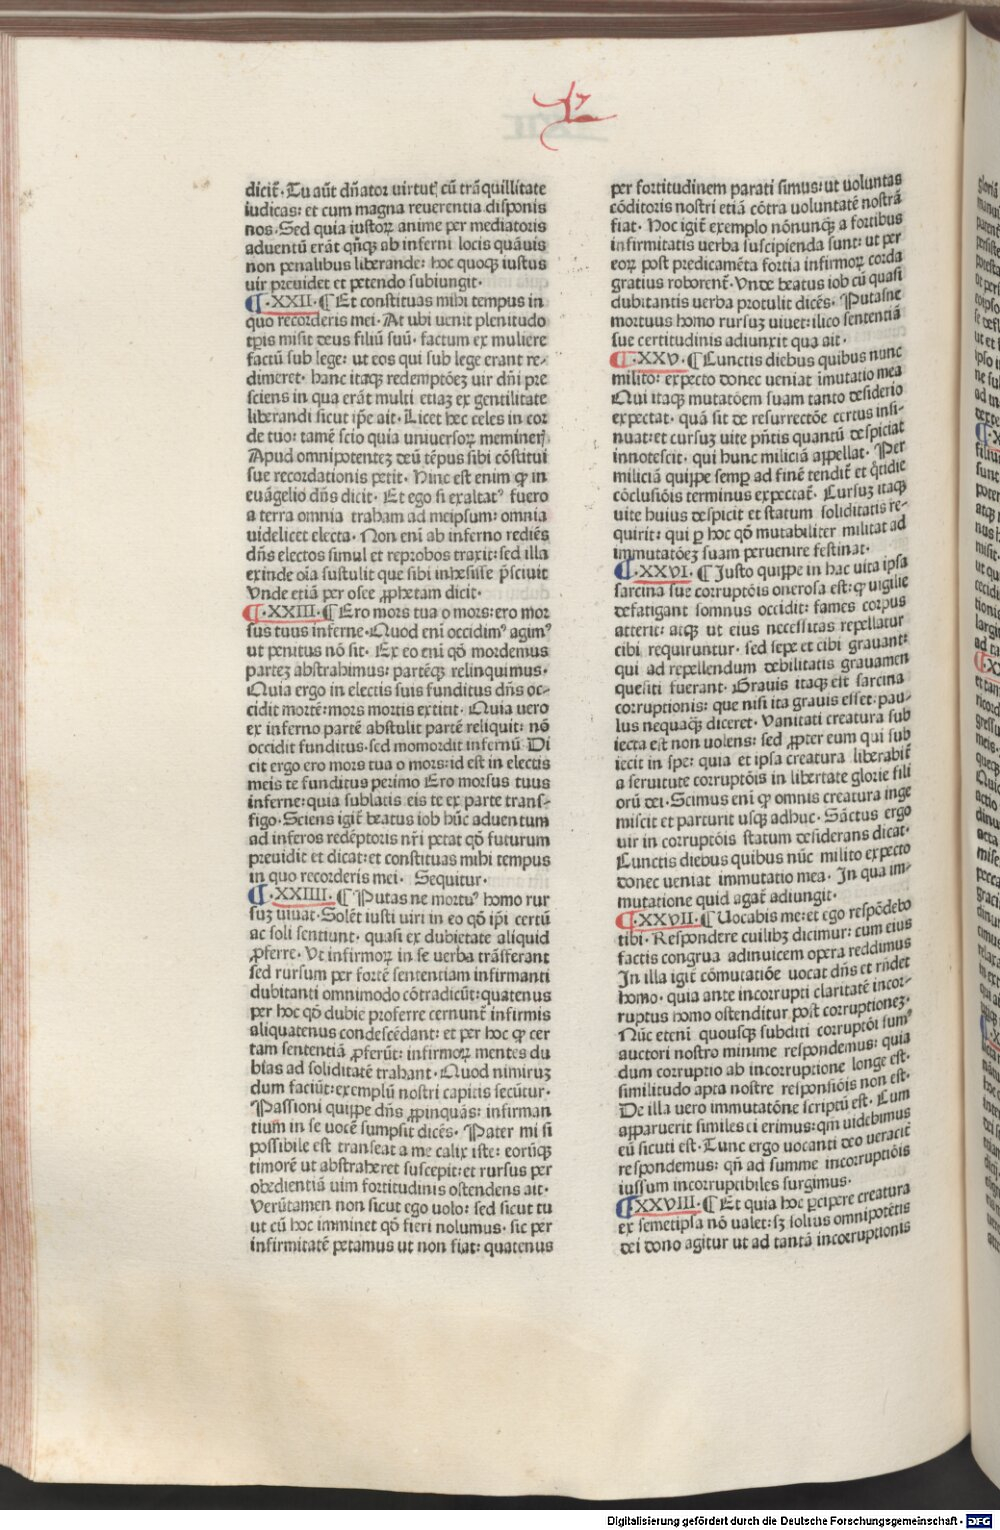 dicit᷑. Tu aūt dn̄ator uirtutꝭ cū trāquillitate
iudicas: et cum magna reuerentia disponis
nos. Sed quia iustoꝝ anime per mediatoris
aduentū erāt qn̄qꝫ ab inferni locis quāuis
non penalibus liberande: hoc quoqꝫ iustus
uir preuidet et petendo subiungit.
¶.XXII.¶ Et constituas mihi tempus in
quo recorderis mei. At ubi uenit plenitudo
tp̄ris misit deus filiū suū. factum ex muliere
factū sub lege: ut eos qui sub lege erant re-
dimeret. hanc itaqꝫ redemptōeꝫ uir dn̄i pre
sciens in qua erāt multi etiaꝫ ex gentilitate
liberandi sicut ip̄e ait. Licet hec celes in cor
de tuo: tamē scio quia uniuersoꝝ meminerꝭ.
Apud omnipotenteꝫ deū tēpus sibi cōstitui
sue recordationis petit. Hinc est enim ꝙ in
euāgelio dn̄s dicit. Et ego si exaltatꝰ fuero
a terra omnia traham ad meipsum: omnia
uidelicet electa. Non eni ab inferno rediēs
dn̄s electos simul et reprobos traxit: sed illa
exinde oīa sustulit que sibi inhesisse p̄sciuit
Vnde etiā per osee ꝓphetam dicit.
¶.XXIII.¶ Ero mors tua o mors: ero mor
sus tuus inferne. Quod eni occidimꝰ agimꝰ
ut penitus nō sit. Ex eo eni qō mordemus
parteꝫ abstrahimus: partēqꝫ relinquimus.
Quia ergo in electis suis funditus dn̄s oc-
cidit mortē: mors mortis extitit. Quia uero
ex inferno partē abstulit partē reliquit: nō
occidit funditus. sed momordit infernū Di
cit ergo ero mors tua o mors: id est in electis
meis te funditus perimo Ero morsus tuus
inferne: quia sublatis eis te ex parte trans-
figo. Sciens igit᷑ beatus iob hūc aduentum
ad inferos redēptoris nr̄i petat qō futurum
preuidit et dicat: et constituas mihi tempus
in quo recorderis mei. Sequitur.
¶.XXIIII.¶ Putas ne mortuꝰ homo rur
suꝫ uiuat. Solēt iusti uiri in eo qō ip̄i certū
ac soli sentiunt. quasi ex dubietate aliquid
ꝓferre. Vt infirmoꝝ in se uerba trāsferant
sed rursum per fortē sententiam infirmanti
dubitanti omnimodo cōtradicūt: quatenus
per hoc qō dubie proferre cernunt᷑ infirmis
aliquatenus condescēdant: et per hoc ꝙ cer
tam sententiā ꝓferūt: infirmoꝝ mentes du
bias ad soliditatē trahant. Quod nimiruꝫ
dum faciūt: exemplū nostri capitis secūtur.
Passioni quippe dn̄s ꝓpinquās: infirman
tium in se uocē sumpsit dicēs. Pater mi si
possibile est transeat a me calix iste: eorūqꝫ
timorē ut abstraheret suscepit: et rursus per
obedientiā uim fortitudinis ostendens ait.
Verūtamen non sicut ego uolo: sed sicut tu
ut cū hoc imminet qō fieri nolumus. sic per
infirmitatē petamus ut non fiat: quatenus
per fortitudinem parati simus: ut uoluntas
cōditoris nostri etiā cōtra uoluntatē nostrā
fiat. Hoc igit᷑ exemplo nōnunqꝫ̄ a fortibus
infirmitatis uerba suscipienda sunt: ut per
eoꝝ post predicamēta fortia infirmoꝝ corda
gratius roborent᷑. Vnde beatus iob cū quasi
dubitantis uerba protulit dicēs. Putasne
mortuus homo rursuꝫ uiuet: ilico sententiā
sue certitudinis adiunxit qua ait.
¶.XXV.¶ Cunctis diebus quibus nunc
milito: expecto donec ueniat īmutatio mea
Qui itaqꝫ mutatōem suam tanto desiderio
expectat. quā sit de resurrectōe certus insi-
nuat: et cursuꝫ uite pn̄tis quantū despiciat
innotescit. qui hunc miliciā appellat. Per
miliciā quippe semꝑ ad finē tendit᷑ et q̄tidie
cōclusiōis terminus expectat᷑. Cursuꝫ itaqꝫ
uite huius despicit et statum soliditatis re-
quirit: qui ꝑ hoc qō mutabiliter militat ad
immutatōeꝫ suam peruenire festinat.
¶.XXVI.¶ Justo quippe in hac uita ipsa
sarcina sue corruptōis onerosa est: ꝙ uigilie
defatigant somnus occidit: fames corpus
atterit: atqꝫ ut eius necessitas repellatur
cibi requiruntur. sed sepe et cibi grauant:
qui ad repellendum debilitatis grauamen
quesiti fuerant. Grauis itaqꝫ est sarcina
corruptionis: que nisi ita grauis esset: pau-
lus nequaqꝫ̄ diceret. Vanitati creatura sub
iecta est non uolens: sed ꝓpter eum qui sub
iecit in spe: quia et ipsa creatura liberabit᷑
a seruitute corruptōis in libertate glorie fili
orū dei. Scimus eni ꝙ omnis creatura inge
miscit et parturit usqꝫ adhuc. Sāctus ergo
uir in corruptōis statum desiderans dicat.
Cunctis diebus quibus nūc milito expecto
donec ueniat immutatio mea. In qua im-
mutatione quid agat᷑ adiungit.
¶.XXVII.¶ Uocabis me: et ego respōdebo
tibi. Respondere cuilibꝫ dicimur: cum eius
factis congrua adinuicem opera reddimus
In illa igit᷑ cōmutatiōe uocat dn̄s et rn̄det
homo. quia ante incorrupti claritatē incor-
ruptus homo ostenditur post corruptioneꝫ.
Nūc eteni quousqꝫ subditi corruptōi sumꝰ
auctori nostro minime respondemus: quia
dum corruptio ab incorruptione longe est.
similitudo apta nostre responsiōis non est.
De illa uero immutatōne scriptū est. Cum
apparuerit similes ei erimus: qm̄ uidebimus
eū sicuti est. Tunc ergo uocanti deo ueracit᷑
respondemus: qn̄ ad summe incorruptiōis
iussum incorruptibiles surgimus.
¶XXVIII.¶ Et quia hoc ꝑcipere creatura
ex semetipsa nō ualet: sꝫ solius omnipotētis
dei dono agitur ut ad tantā incorruptionis
Digitalisierung gefördert durch die Deutsche Forschungsgemeinschaft - DFG